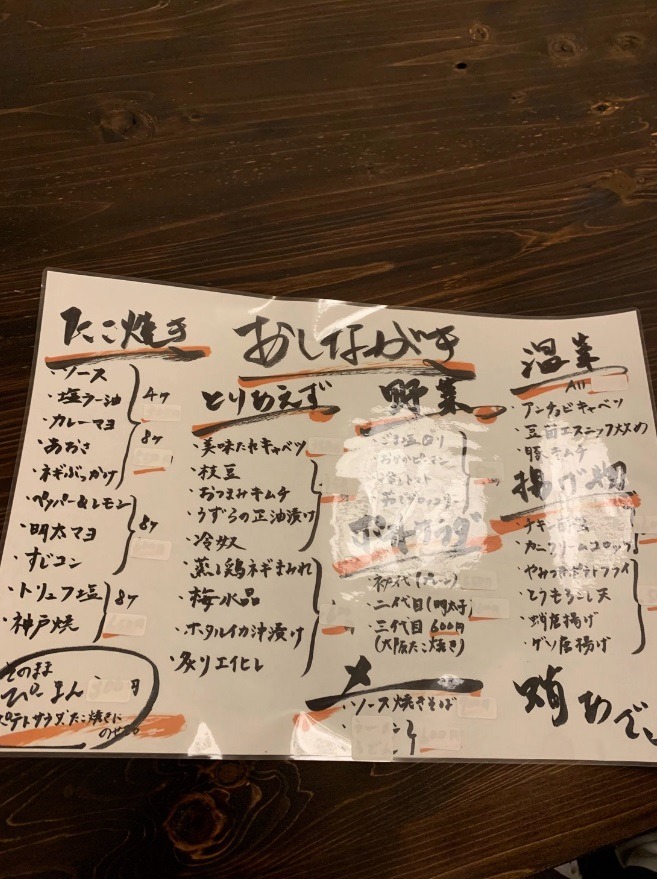 おしながき
たこ焼き
・ソース
・塩ラー油
・カレーマヨ
・あおさ
・ネギぶっかけ
4ヶ
8ヶ
・ペッパー&レモン
・明太マヨ
・すじコン
8ヶ
・トリュフ塩
・神戸焼
8ヶ
そのまま
ぴーまん 円
ポテトサラダ、たこ焼きに
とりあえず
・美味だれキャベツ
・枝豆
・おつまみキムチ
・うずらの正油漬け
・冷奴
・蒸し鶏ネギまみれ
・梅水晶
・ホタルイカ沖漬け
・炙りエイヒレ
野菜
ポテトサラダ
・初代(プレーン)
・二代目(明太子)
・三代目 600円
(大阪たこ焼き)
〆
・ソース焼きそば
温菜
All
・アンチョビキャベツ
・豆苗エスニック炒め
・豚キムチ
揚げ物
・カニクリームコロッケ
・やみつきポテトフライ
・とうもろこし天
・蛸唐揚げ
・ゲソ唐揚げ